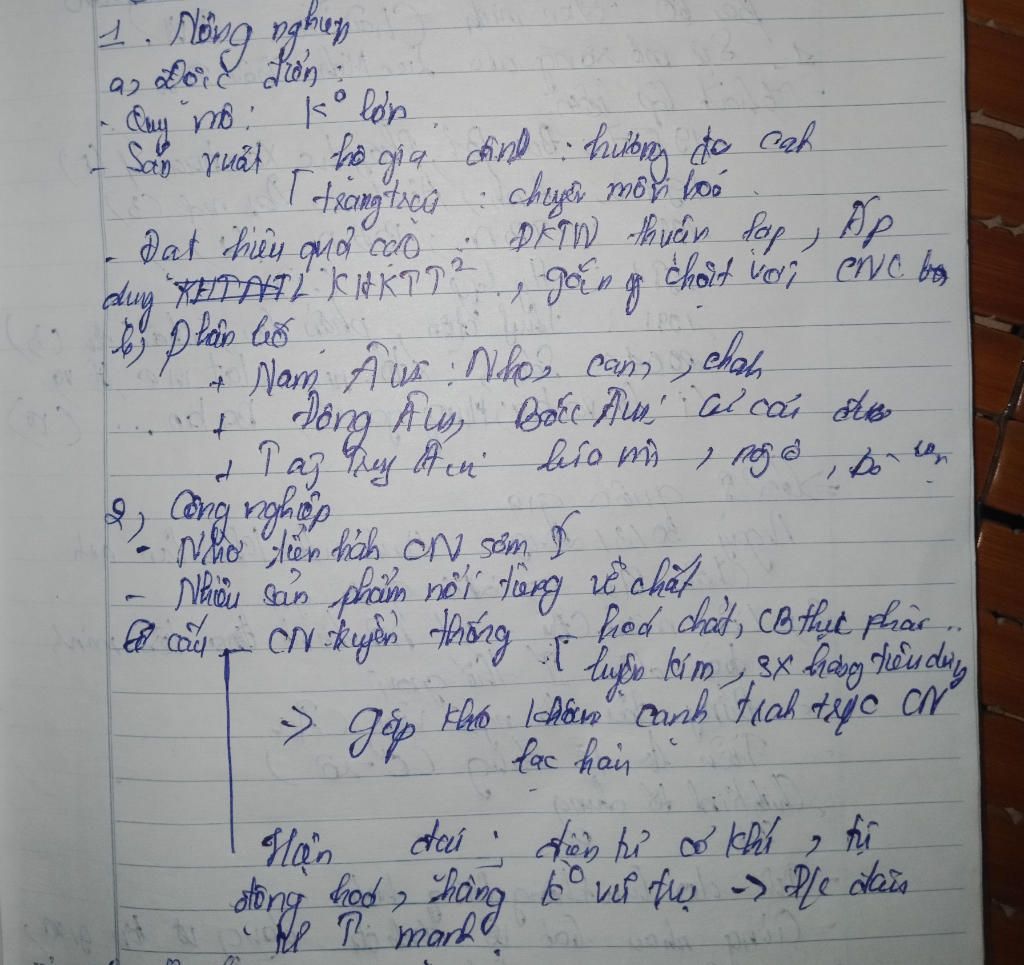 1. Nông nghiệp
a, Đặc điểm:
- Quy mô: K° lớn
- Sản xuất hộ gia đình: hướng đa canh
trang trại: chuyên môn hoá
- Đạt hiệu quả cao: ĐKTN thuận lợi, Áp
dụng KHKTT², gắn chặt với CNCB
b, Phân bố
+ Nam Âu: Nho, cam, chanh
+ Đông Âu, Bắc Âu: củ cải đường
+ Tây Trung Âu: lúa mì, ngô,
2, Công nghiệp
- Nhờ tiến hành CN sớm
- Nhiều sản phẩm nổi tiếng về chất
Cơ cấu CN truyền thống hoá chất, CB thực phẩm..
luyện kim, SX hàng tiêu dùng
-> gặp khó khăn cạnh tranh trước CN
lạc hậu
Hiện đại: điện tử cơ khí, tự
động hoá, hàng K° vũ trụ -> Đ/c đầu
T mạnh